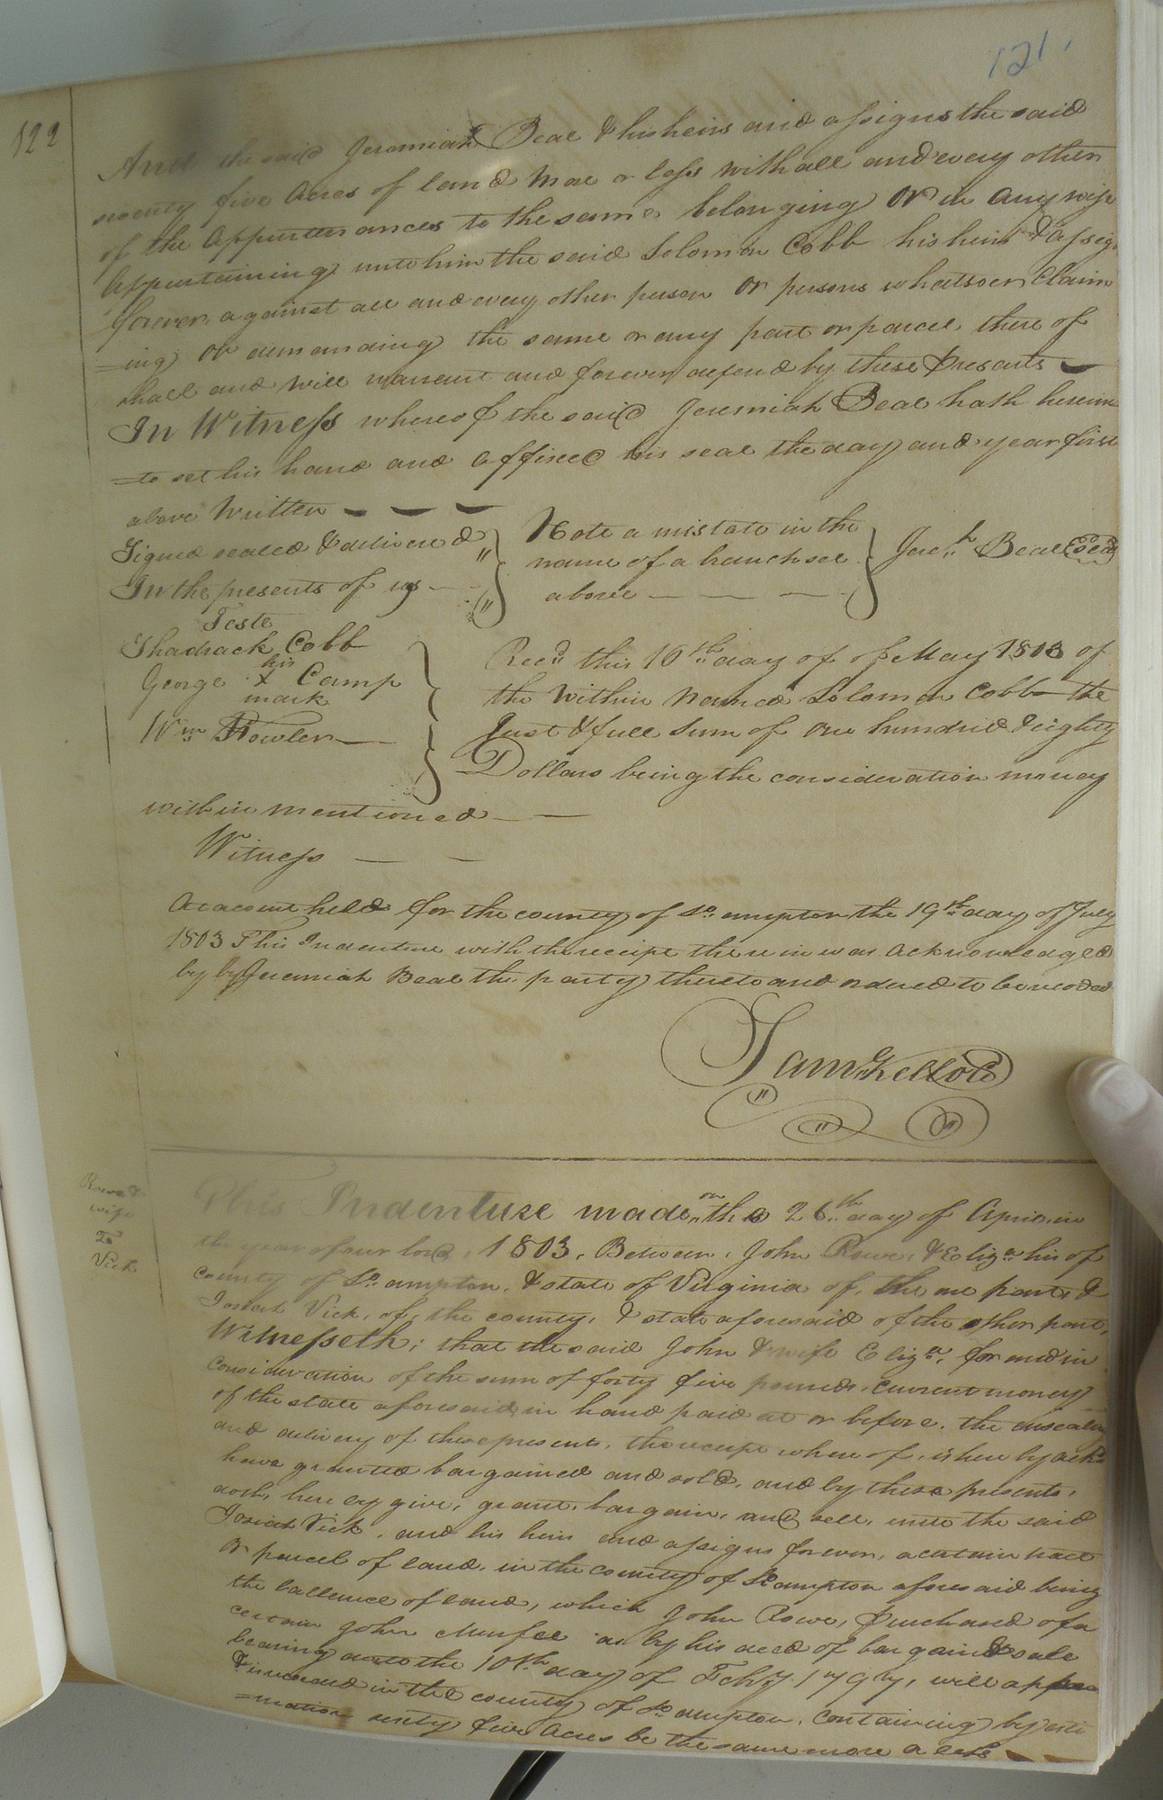 121.
122
And the said Jeremiah Beal & his heirs and assigns the said
seventy five Acres of land Mor or less with all and every other
of the Appurtenances to the same belonging or in any wise
Appurtaining unto him the said Solomon Cobb his heirs & assigs
forever, against all and every other person or persons whatsoer Claim
=ing or demanding the same or any part or parcel there of
shall and will warrant and forever defend by these Presents
In Witness whereof the said Jeremiah Beal hath hereun
=to set his hand and affixed his seal the day and year first
above Written
Signed sealed & delivered
In the presents of us
Teste
Note a mistake in the
name of a
above
Jereh. Beal (seal)
Shadrack Cobb
George his X mark Camp
Wm. Fowler
Recd this 10th day of of May 1803 of
the Within Named Solomon Cobb the
Just & full Sum of One hundred & eighty
Dollars being the consideration money
within mentioned
Witness
At a court held for the county of So.ampton the 19th day of July
1803 This Indenture with the receipt there in was acknowledged
by by Jeremiah Beal the party thereto and ordered to be recorded
Saml Kello C
Rowe &
wife
To
Vick
This Indenture made on the 26th day of April in
the year of our lord, 1803, Between, John Rowe, & Eliza. his of
county of So.ampton, & state of Virginia of, the one part, &
Josiah Vick, of, the county, & state aforesaid of the other part,
Witnesseth; that the said John & wife Eliza, for and in
consideration of the sum of forty five pounds, current money
of the state aforesaid, in hand paid at or before, the ensealing
and delivery of these presents, the receipt where of, is here by ackd
have granted bargained and sold, and by these presents,
doth, here by give, grant, bargain, and sell, unto the said
Josiah Vick, and his heirs and assigns forever, a certain tract
or parcel of land, in the county of So.ampton aforesaid being
the ballence of land, which John Rowe, Purchased of a
certain John as by his deed of bargain & sale
bearing date the 10th day of Feby 1797, will appear
& in the county of So.ampton, containing by esti
=mation sixty five Acres be the same more or less